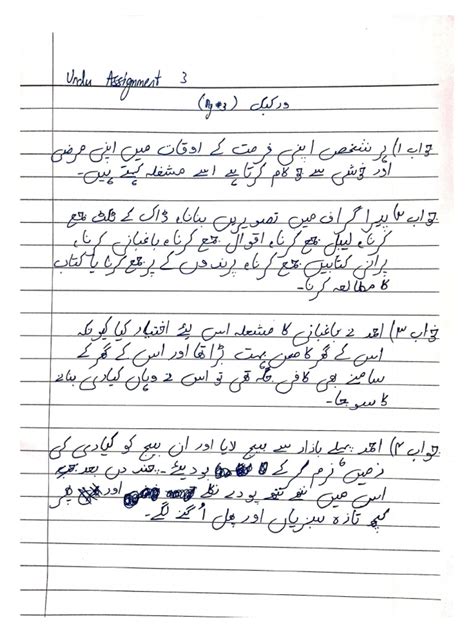 Urdu Assignment 3
ورک بک (Pg # 3)
جواب ۱) ہر شخص اپنی فرصت کے اوقات میں اپنی مرضی
اور خوشی سے جو کام کرتا ہے اسے مشغلہ کہتے ہیں۔
جواب ۲) پیراگراف میں تصویریں بنانا، ڈاک کے ٹکٹ جمع
کرنا، لیبل جمع کرنا، اقوال جمع کرنا، باغبانی کرنا،
پرانی کتابیں جمع کرنا، پرندوں کے پر جمع کرنا یا کتاب
کا مطالعہ کرنا۔
جواب ۳) احمد نے باغبانی کا مشعلہ اس لیئے اختیار کیا کیونکہ
اس کے گھر کا صحن بہت بڑا تھا اور اس کے گھر کے
سامنے بھی کافی جگہ تھی تو اس نے وہاں کیادی بنانے
کا سوچا۔
جواب ۴) احمد پہلے بازار سے بیج لایا اور ان بیج کو کیادی کی
زمین نرم کر کے بو دیئے۔ چند دن بعد
اس میں ننھے ننھے پودے نکلے اور پھر
کچھ تازہ سبزیاں اور پھل اُگنے لگے۔